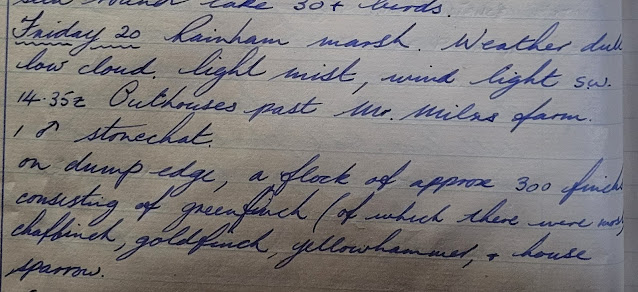 round lake 30+ birds.
Friday 20 Rainham marsh. Weather dull
low cloud. light mist, wind light sw.
14.35z Outhouses past Mr. Milns farm.
1 ♂ stonechat.
on dump edge, a flock of approx 300 finch
consisting of greenfinch (of which there were most)
chaffinch, goldfinch, yellowhammer, + house
sparrow.